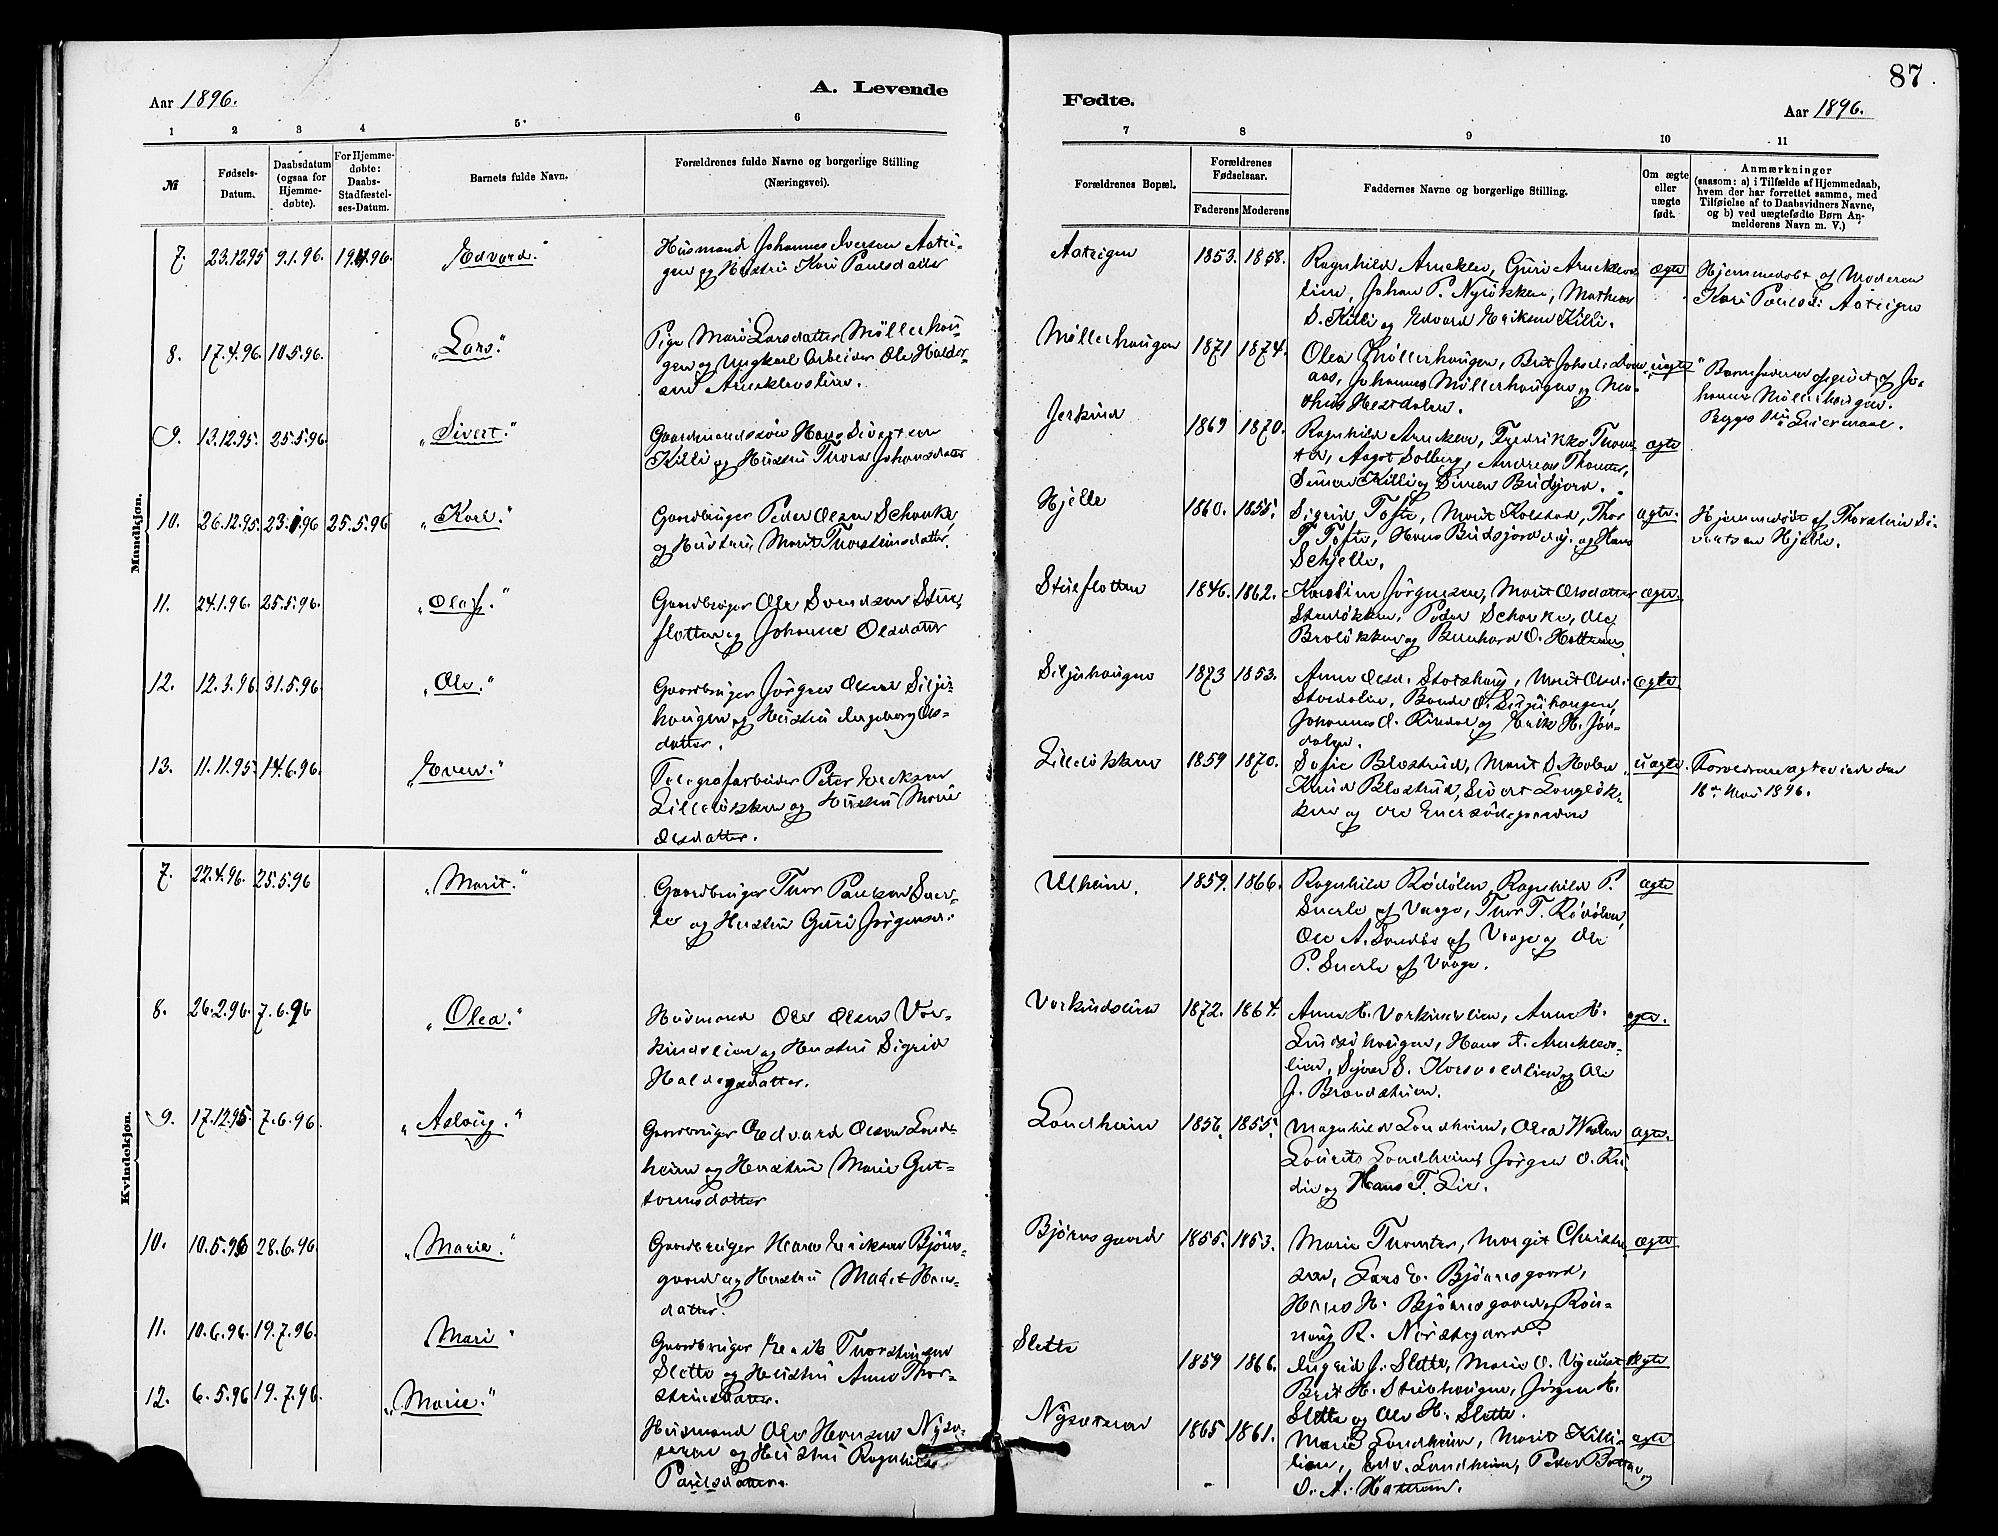 87
Aar 1896.
A. Levende
Fødte.
Aar 1896.
1 2 3 4 5. 6
7 8 9 10 11
№
Fødsels-
Datum.
Daabsdatum
(ogsaa for
Hjemme-
døbte).
For Hjemme-
døbte:
Daabs-
Stadfæstel-
ses-Datum.
Barnets fulde Navn.
Forældrenes fulde Navne og borgerlige Stilling
(Næringsvei).
Forældrenes Bopæl.
Forældrenes
Fødselsaar.
Faderens Moderens
Faddernes Navne og borgerlige Stilling.
Om ægte
eller
uægte
født.
Anmærkninger
(saasom: a) i Tilfælde af Hjemmedaab,
hvem der har forrettet samme, med
Tilføielse af to Daabsvidners Navne,
og b) ved uægtefødte Børn An-
melderens Navn m. V.)
Mandkjøn.
7. 23.12.95 9.1.96. 19.4.96. Edvard."
Husmand Johannes Iversen Aatei-
gen og Hustru Kari Paulsdatter
Aateigen 1853. 1858.
Ragnhild Arneklev, Guri Arneklevs-
lien, Johan P. Nyløkken, Mathias
S. Killi og Edvard Eriksen Killi.
ægte
Hjemmedøbt af Moderen
Kari Paulsd. Aateigen
8. 17.4.96. 10.5.96. "Lars."
Pige Mari Larsdatter Møllerhau-
gen og Ungkarl Arbeider Ole Haldor-
sen Arneklevslien.
Møllerhaugen 1871 1874.
Olea Møllerhaugen, Brit Johsd.
aas, Johannes Møllerhaugen og Ma-
thias Hestdalen.
uægte
Barnefaderen opgivet af Jo-
hannes Møllerhaugen.
9. 13.12.95. 25.5.96. "Sivert."
Gaardmandssøn Hans Sivertsen
Killi og Hustru Thora Johansdatter
Jerkind 1869 1870.
Ragnhild Arneklev, Fredrikke Thom-
ter, Aagot Solberg, Andreas Thomter,
Simen Killi og Simen Budsjord.
ægte
10. 26.12.95. 23.1.96 25.5.96 "Karl."
Gaardbruger Peder Olsen Schavke,
og Hustru, Marit Thorsteinsdatter.
Hjelle 1860. 1855.
Sigrid Tofte, Marit Kolstad, Thor
T. Tofte, Hans Budsjord og Hans
Schjelle.
ægte.
Hjemmedøbt af Thorstein Si-
vertsen Hjelle.
11. 24.1.96. 25.5.96. "Olaf."
Gaardbruger Ole Svendsen Stue-
flotten og Johanne Olsdatter
Stueflotten 1846. 1862.
Karoline Jørgensen, Marit Olsdatter
Storløkken, Peder Schavke, Ole
Broløkken og Bernhard O.
ægte
12. 12.3.96. 31.5.96. "Ole."
Gaardbruger Jørgen Olsen Silju-
haugen og Hustru Ingeborg Ols-
datter.
Siljuhaugen 1873 1853.
Anne Olsd. Storshaug, Marit Olsd.
Stordalen, Bonde O. Siljuhaugen,
Johannes O. Rindal og Erik H. Jøn-
dalen.
ægte
13. 11.11.95. 14.6.96. "Even."
Telegrafarbeider Peter Ericksen
Lilleløkken og Hustru Marie
Olsdatter.
Lilleløkken 1859 1870.
Sofie Blostrud, Marit S. Holen
Knud Blostrud, Sivert Langløk-
ken og Ole
uægte.
Forældrene ægteviede den
18de Mai 1896.
Kvindekjøn.
7. 22.4.96. 25.5.96 "Marit."
Gaardbruger Thor Paulsen Sner-
le og Hustru Guri Jørgensd.
Ulheim. 1859. 1866.
Ragnhild Rødølen, Ragnhild P.
Snerle af Vaage, Thor T. Rødølen,
Ole A. Sandbo af Vaage og Ole
P. Snerle af Vaage.
ægte
8. 26.2.96. 7.6.96 "Olea."
Husmand Ole Olsen Vor-
kindslien og Hustru Sigrid
Haldorsdatter.
Vorkindslien 1872. 1864.
Anne H. Vorkinnslien, Anne H.
haugen, Hans A. Arneklevs-
lien, Siver S. Korsvoldlien og Ole
J. Brandstrøm.
ægte.
9. 17.12.95. 7.6.96 "Aslaug."
Gaardbruger Edvard Olsen Land-
heim og Hustru Marie Gut-
tormsdatter
Landheim 1856. 1855.
Magnhild Landheim, Olea Wollen
Lourits Landheim, Jørgen O. Ru-
die og Hans T. Lie.
ægte.
10. 10.5.96 28.6.96. "Marie."
Gaardbruger Hans Ericksen Bjørns-
gaard og Hustru Madet Hans-
datter.
Bjørnsgaard 1855. 1853.
Marie Thomter, Margit Christen-
sen, Lars E. Bjørnsgaard,
Hans H. Bjørnsgaard, Røn-
naug R. Nordstegaard.
ægte
11. 10.6.96. 19.7.96. Mari"
Gaardbruger Erik Thorstensen
Slette og Hustru Anne Thor-
steinsdatter.
Slette 1859 1866.
Ingrid J. Slette, Marie O.
Brit H. Stuehaugen, Jørgen H.
Slette og Ole H. Slette.
ægte
12. 6.5.96 19.7.96 "Marie."
Husmand Ole Hansen Nysæ-
teren og Hustru Ragnhild
Paulsdatter.
Nysæteren 1865 1861.
Marie Landheim, Marit Killi-
lien, Edv. Landheim, Peder
ægte